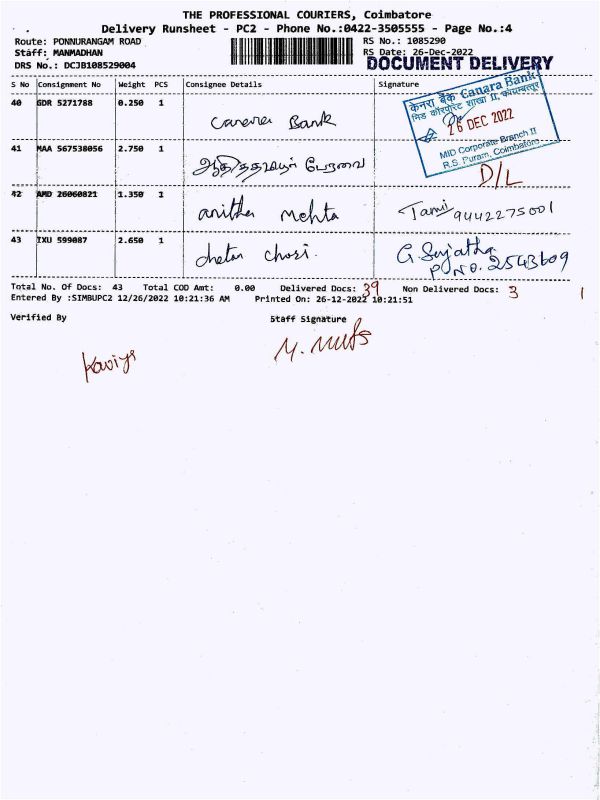 THE PROFESSIONAL COURIERS, Coimbatore
Delivery Runsheet - PC2 - Phone No.:0422-3505555 - Page No.:4
Route: PONNURANGAM ROAD RS No.: 1085290
Staff: MANMADHAN RS Date: 26-Dec-2022
DRS No.: DCJB108529004 DOCUMENT DELIVERY
S No Consignment No Weight PCS Consignee Details Signature
40 GDR 5271788 0.250 1 Canara Bank
केनरा बैंक Canara Bank
मिड कॉरपोरेट शाखा II, कोयम्बत्तूर
26 DEC 2022
MID Corporate Branch II
R.S. Puram, Coimbatore
41 MAA 567538056 2.750 1 பேரவை D/L
42 AMD 26060821 1.350 1 anitha Mehta Tamil 9442275001
43 IXU 599087 2.650 1 G. Sujatha
P NO. 2543609
Total No. Of Docs: 43 Total COD Amt: 0.00 Delivered Docs: 39 Non Delivered Docs: 3 1
Entered By :SIMBUPC2 12/26/2022 10:21:36 AM Printed On: 26-12-2022 10:21:51
Verified By Staff Signature
Kaviya